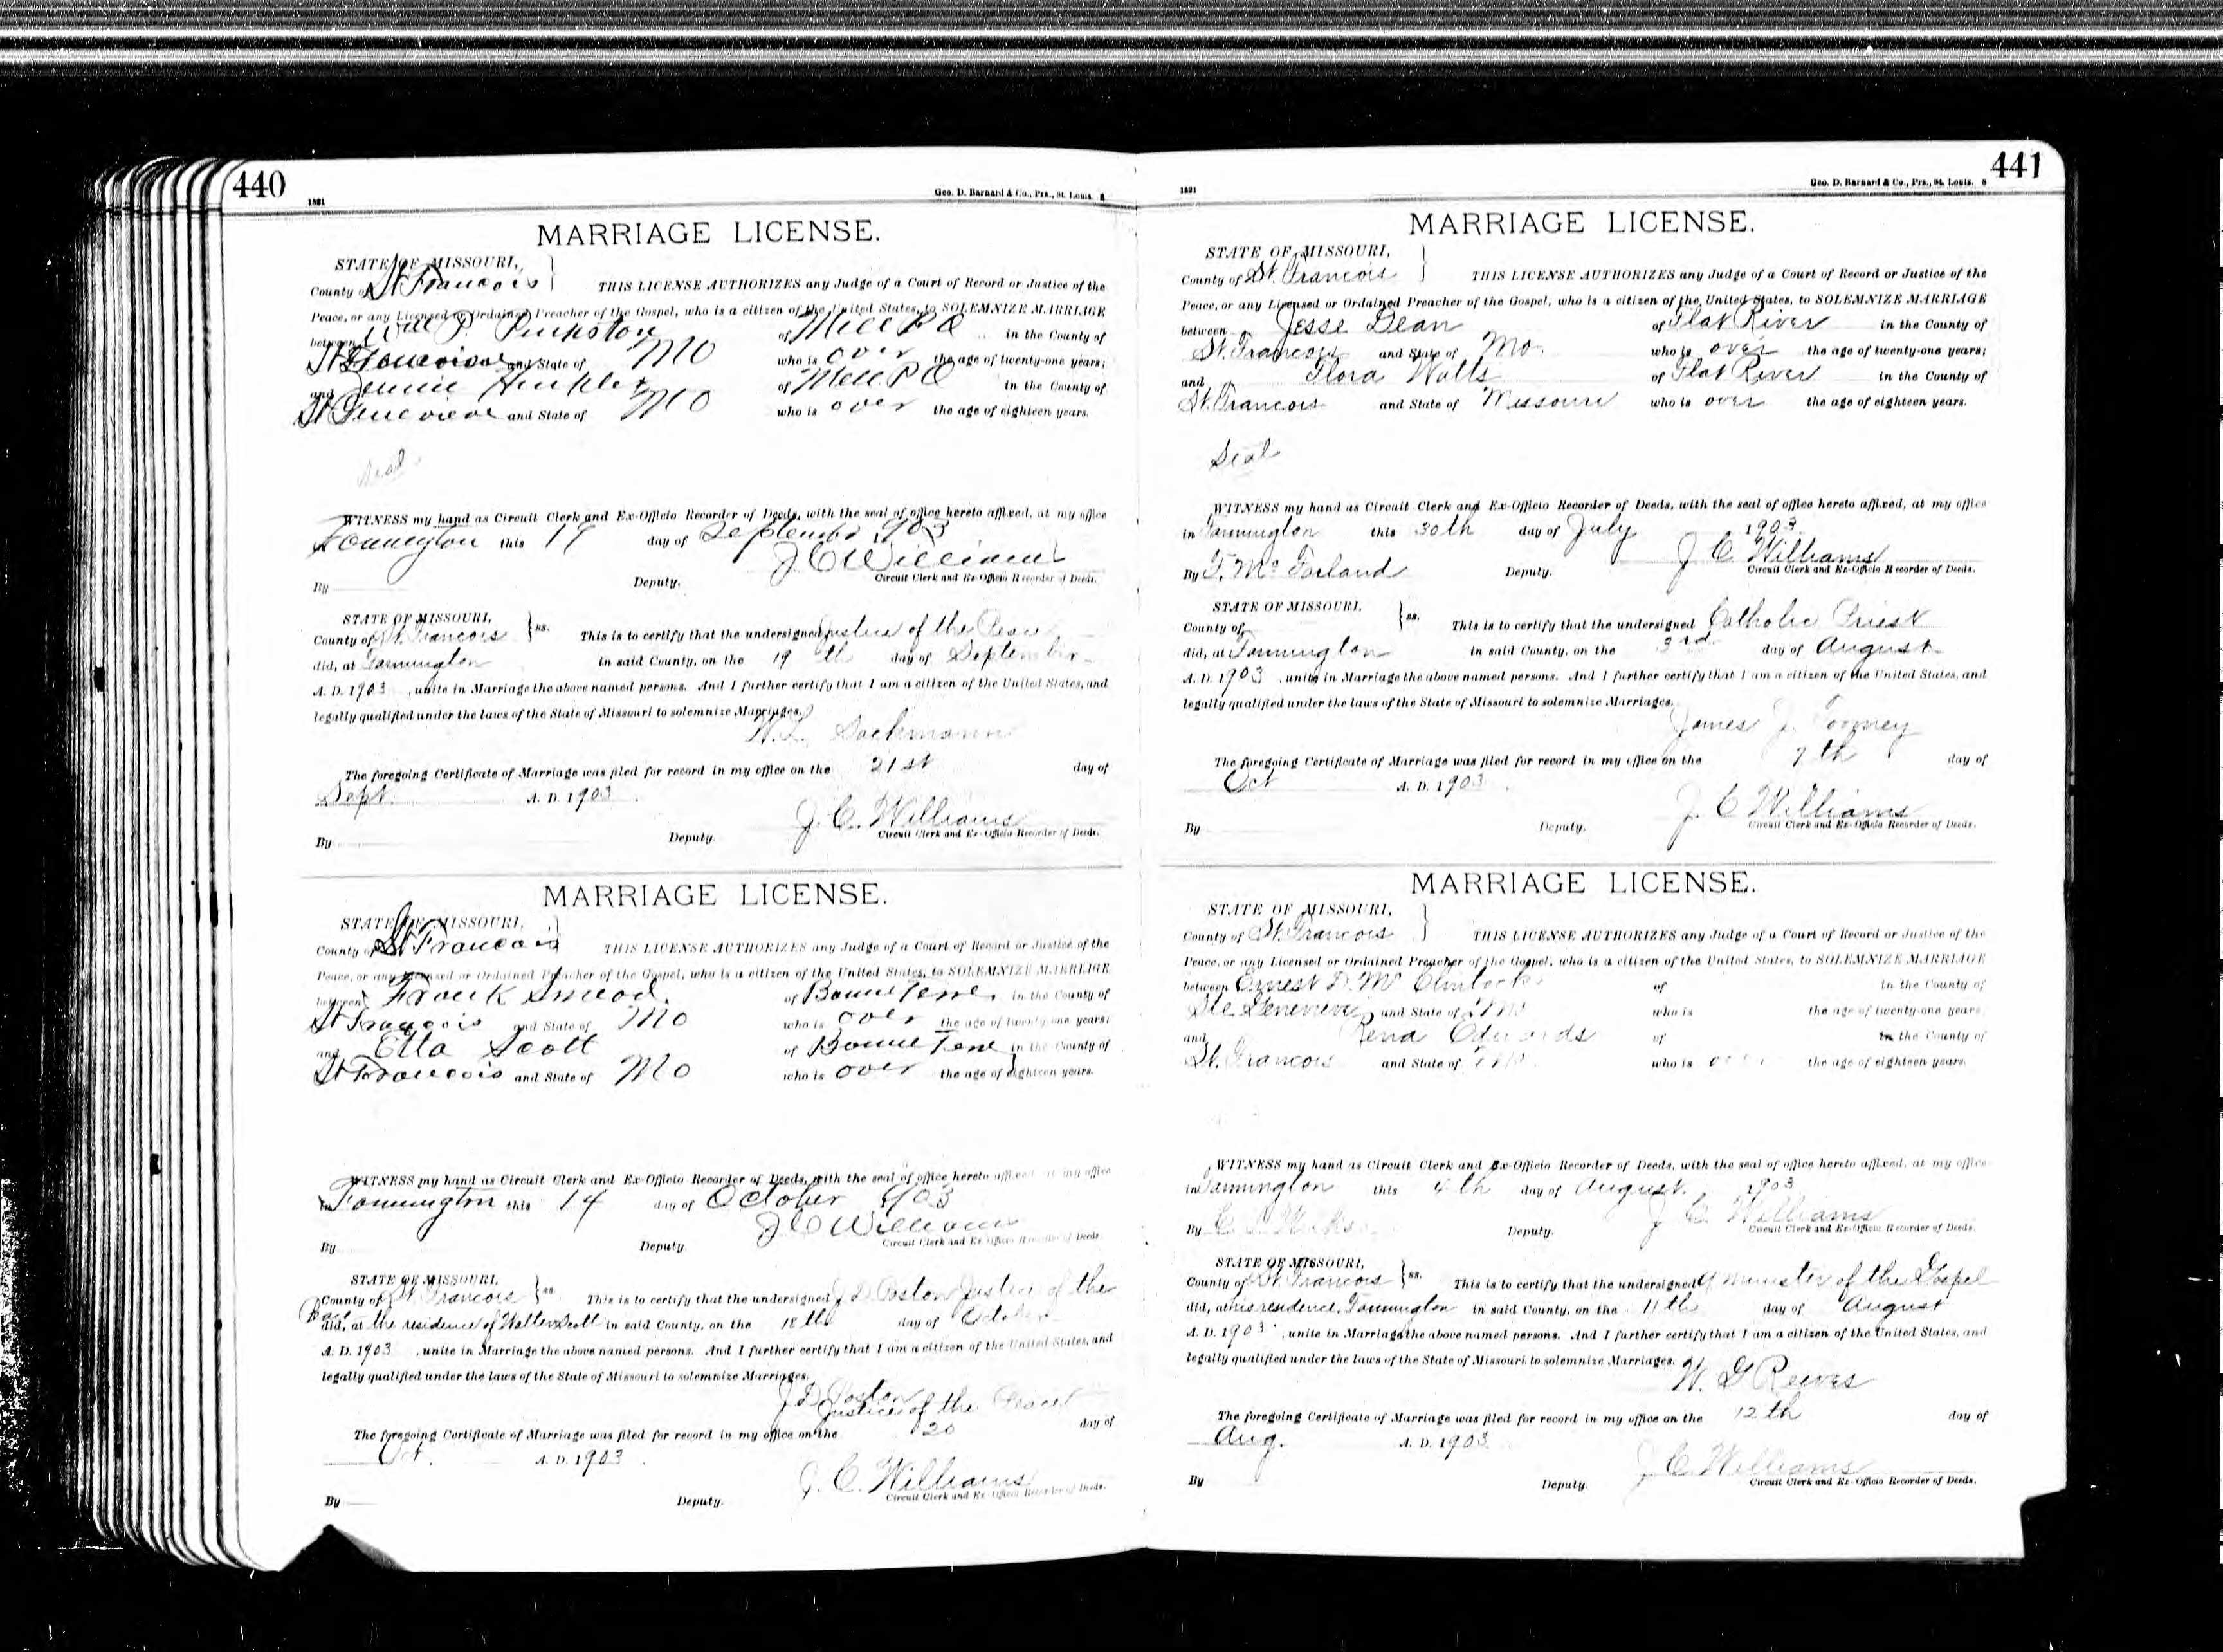 440
1881
Geo. D. Barnard & Co., Prs., St. Louis. 8
MARRIAGE LICENSE.
STATE OF MISSOURI,
County of St Francois THIS LICENSE AUTHORIZES any Judge of a Court of Record or Justice of the
Peace, or any Licensed or Ordained Preacher of the Gospel, who is a citizen of the United States, to SOLEMNIZE MARRIAGE
between Will P. Pinkston of Mill P O in the County of
St Genevieve and State of MO who is over the age of twenty-one years;
and Jennie Hinkle of Mill P O in the County of
St Genevieve and State of MO who is over the age of eighteen years.
Seal
WITNESS my hand as Circuit Clerk and Ex-Officio Recorder of Deeds, with the seal of office hereto affixed, at my office
Farmington this 19 day of September 1903
J C Williams
By Deputy. Circuit Clerk and Ex-Officio Recorder of Deeds.
STATE OF MISSOURI,
County of St. Francois ss. This is to certify that the undersigned Justice of the Peace
did, at Farmington in said County, on the 19th day of September
A. D. 1903, unite in Marriage the above named persons. And I further certify that I am a citizen of the United States, and
legally qualified under the laws of the State of Missouri to solemnize Marriages.
Sackmann
The foregoing Certificate of Marriage was filed for record in my office on the 21st day of
Sept. A. D. 1903.
J. C. Williams
By Deputy. Circuit Clerk and Ex-Officio Recorder of Deeds.
MARRIAGE LICENSE.
STATE OF MISSOURI,
County of St Francois THIS LICENSE AUTHORIZES any Judge of a Court of Record or Justice of the
Peace, or any Licensed or Ordained Preacher of the Gospel, who is a citizen of the United States, to SOLEMNIZE MARRIAGE
between Frank Smead of Bonne Terre in the County of
St Francois and State of MO who is over the age of twenty-one years;
and Etta Scott of Bonne Terre in the County of
St Francois and State of MO who is over the age of eighteen years.
WITNESS my hand as Circuit Clerk and Ex-Officio Recorder of Deeds, with the seal of office hereto affixed, at my office
in Farmington this 14 day of October 1903
J C Williams
By Deputy. Circuit Clerk and Ex-Officio Recorder of Deeds.
STATE OF MISSOURI,
County of St. Francois ss. This is to certify that the undersigned J D Poston Justice of the
Peace did, at the residence of Walter Scott in said County, on the 18th day of October
A. D. 1903, unite in Marriage the above named persons. And I further certify that I am a citizen of the United States, and
legally qualified under the laws of the State of Missouri to solemnize Marriages.
J D Poston
Justice of the Peace
The foregoing Certificate of Marriage was filed for record in my office on the 20 day of
Oct. A. D. 1903.
J. C. Williams
By Deputy. Circuit Clerk and Ex-Officio Recorder of Deeds.
441
1881
Geo. D. Barnard & Co., Prs., St. Louis. 8
MARRIAGE LICENSE.
STATE OF MISSOURI,
County of St. Francois THIS LICENSE AUTHORIZES any Judge of a Court of Record or Justice of the
Peace, or any Licensed or Ordained Preacher of the Gospel, who is a citizen of the United States, to SOLEMNIZE MARRIAGE
between Jesse Dean of Flat River in the County of
St. Francois and State of Mo. who is over the age of twenty-one years;
and Flora Watts of Flat River in the County of
St. Francois and State of Missouri who is over the age of eighteen years.
Seal
WITNESS my hand as Circuit Clerk and Ex-Officio Recorder of Deeds, with the seal of office hereto affixed, at my office
in Farmington this 30th day of July 1903.
J C Williams
By T. McFarland Deputy. Circuit Clerk and Ex-Officio Recorder of Deeds.
STATE OF MISSOURI,
County of ss. This is to certify that the undersigned Catholic Priest
did, at Farmington in said County, on the 3rd day of August
A. D. 1903, unite in Marriage the above named persons. And I further certify that I am a citizen of the United States, and
legally qualified under the laws of the State of Missouri to solemnize Marriages.
James J. Toomey
The foregoing Certificate of Marriage was filed for record in my office on the 7th day of
Oct A. D. 1903.
J. C Williams
By Deputy. Circuit Clerk and Ex-Officio Recorder of Deeds.
MARRIAGE LICENSE.
STATE OF MISSOURI,
County of St. Francois THIS LICENSE AUTHORIZES any Judge of a Court of Record or Justice of the
Peace, or any Licensed or Ordained Preacher of the Gospel, who is a citizen of the United States, to SOLEMNIZE MARRIAGE
between Ernest D. McClintock of in the County of
Ste Genevieve and State of Mo who is the age of twenty-one years;
and Rena Edwards of in the County of
St. Francois and State of Mo. who is over the age of eighteen years.
WITNESS my hand as Circuit Clerk and Ex-Officio Recorder of Deeds, with the seal of office hereto affixed, at my office
in Farmington this 4th day of August. 1903
J C Williams
By Deputy. Circuit Clerk and Ex-Officio Recorder of Deeds.
STATE OF MISSOURI,
County of St. Francois ss. This is to certify that the undersigned a minister of the Gospel
did, at his residence, Farmington in said County, on the 11th day of August
A. D. 1903, unite in Marriage the above named persons. And I further certify that I am a citizen of the United States, and
legally qualified under the laws of the State of Missouri to solemnize Marriages.
W. G Reeves
The foregoing Certificate of Marriage was filed for record in my office on the 12th day of
Aug. A. D. 1903.
J C Williams
By Deputy. Circuit Clerk and Ex-Officio Recorder of Deeds.